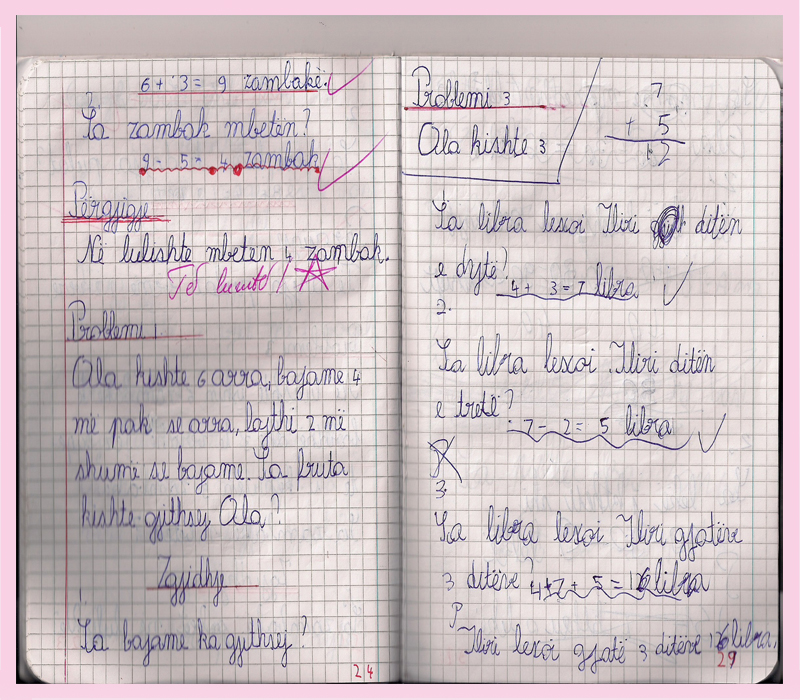 6 + 3 = 9 zambakë.
2.
Sa zambak mbetën?
9 - 5 = 4 zambak
Përgjigje
Në lulishte mbeten 4 zambak.
Të lumtë!
Problemi 1
Ola kishte 6 arra, bajame 4
më pak se arra, lajthi 2 më
shumë se bajame. Sa fruta
kishte gjithsej Ola?
Zgjidhje
1
Sa bajame ka gjithsej?
24
Problemi 3
Ola kishte 3
7
+ 5
12
Sa libra lexoi Iliri ditën
e dytë?
4 + 3 = 7 libra
2.
Sa libra lexoi Iliri ditën
e tretë?
7 - 2 = 5 libra
3.
Sa libra lexoi Iliri gjatëve
3 ditëve?
4+7+ 5 = 16 libra
P.
Iliri lexoi gjatë 3 ditëve 16 libra.
29